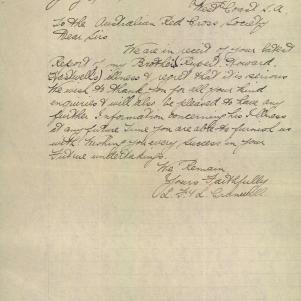 West Coast. S.A
To the Australian Red Cross, Society
Dear Sirs
We are in receit of your latest
Report of my Brothers, Russell, Howard,
illness & regret that it is serious
We wish to thank you for all your kind
enquires & will also be pleased to have any
further Information concerning his Illness
at any future time you are able to furnish us
with. Wishing you every success in your
Future undertakings.
We Remain
Yours Faithfully